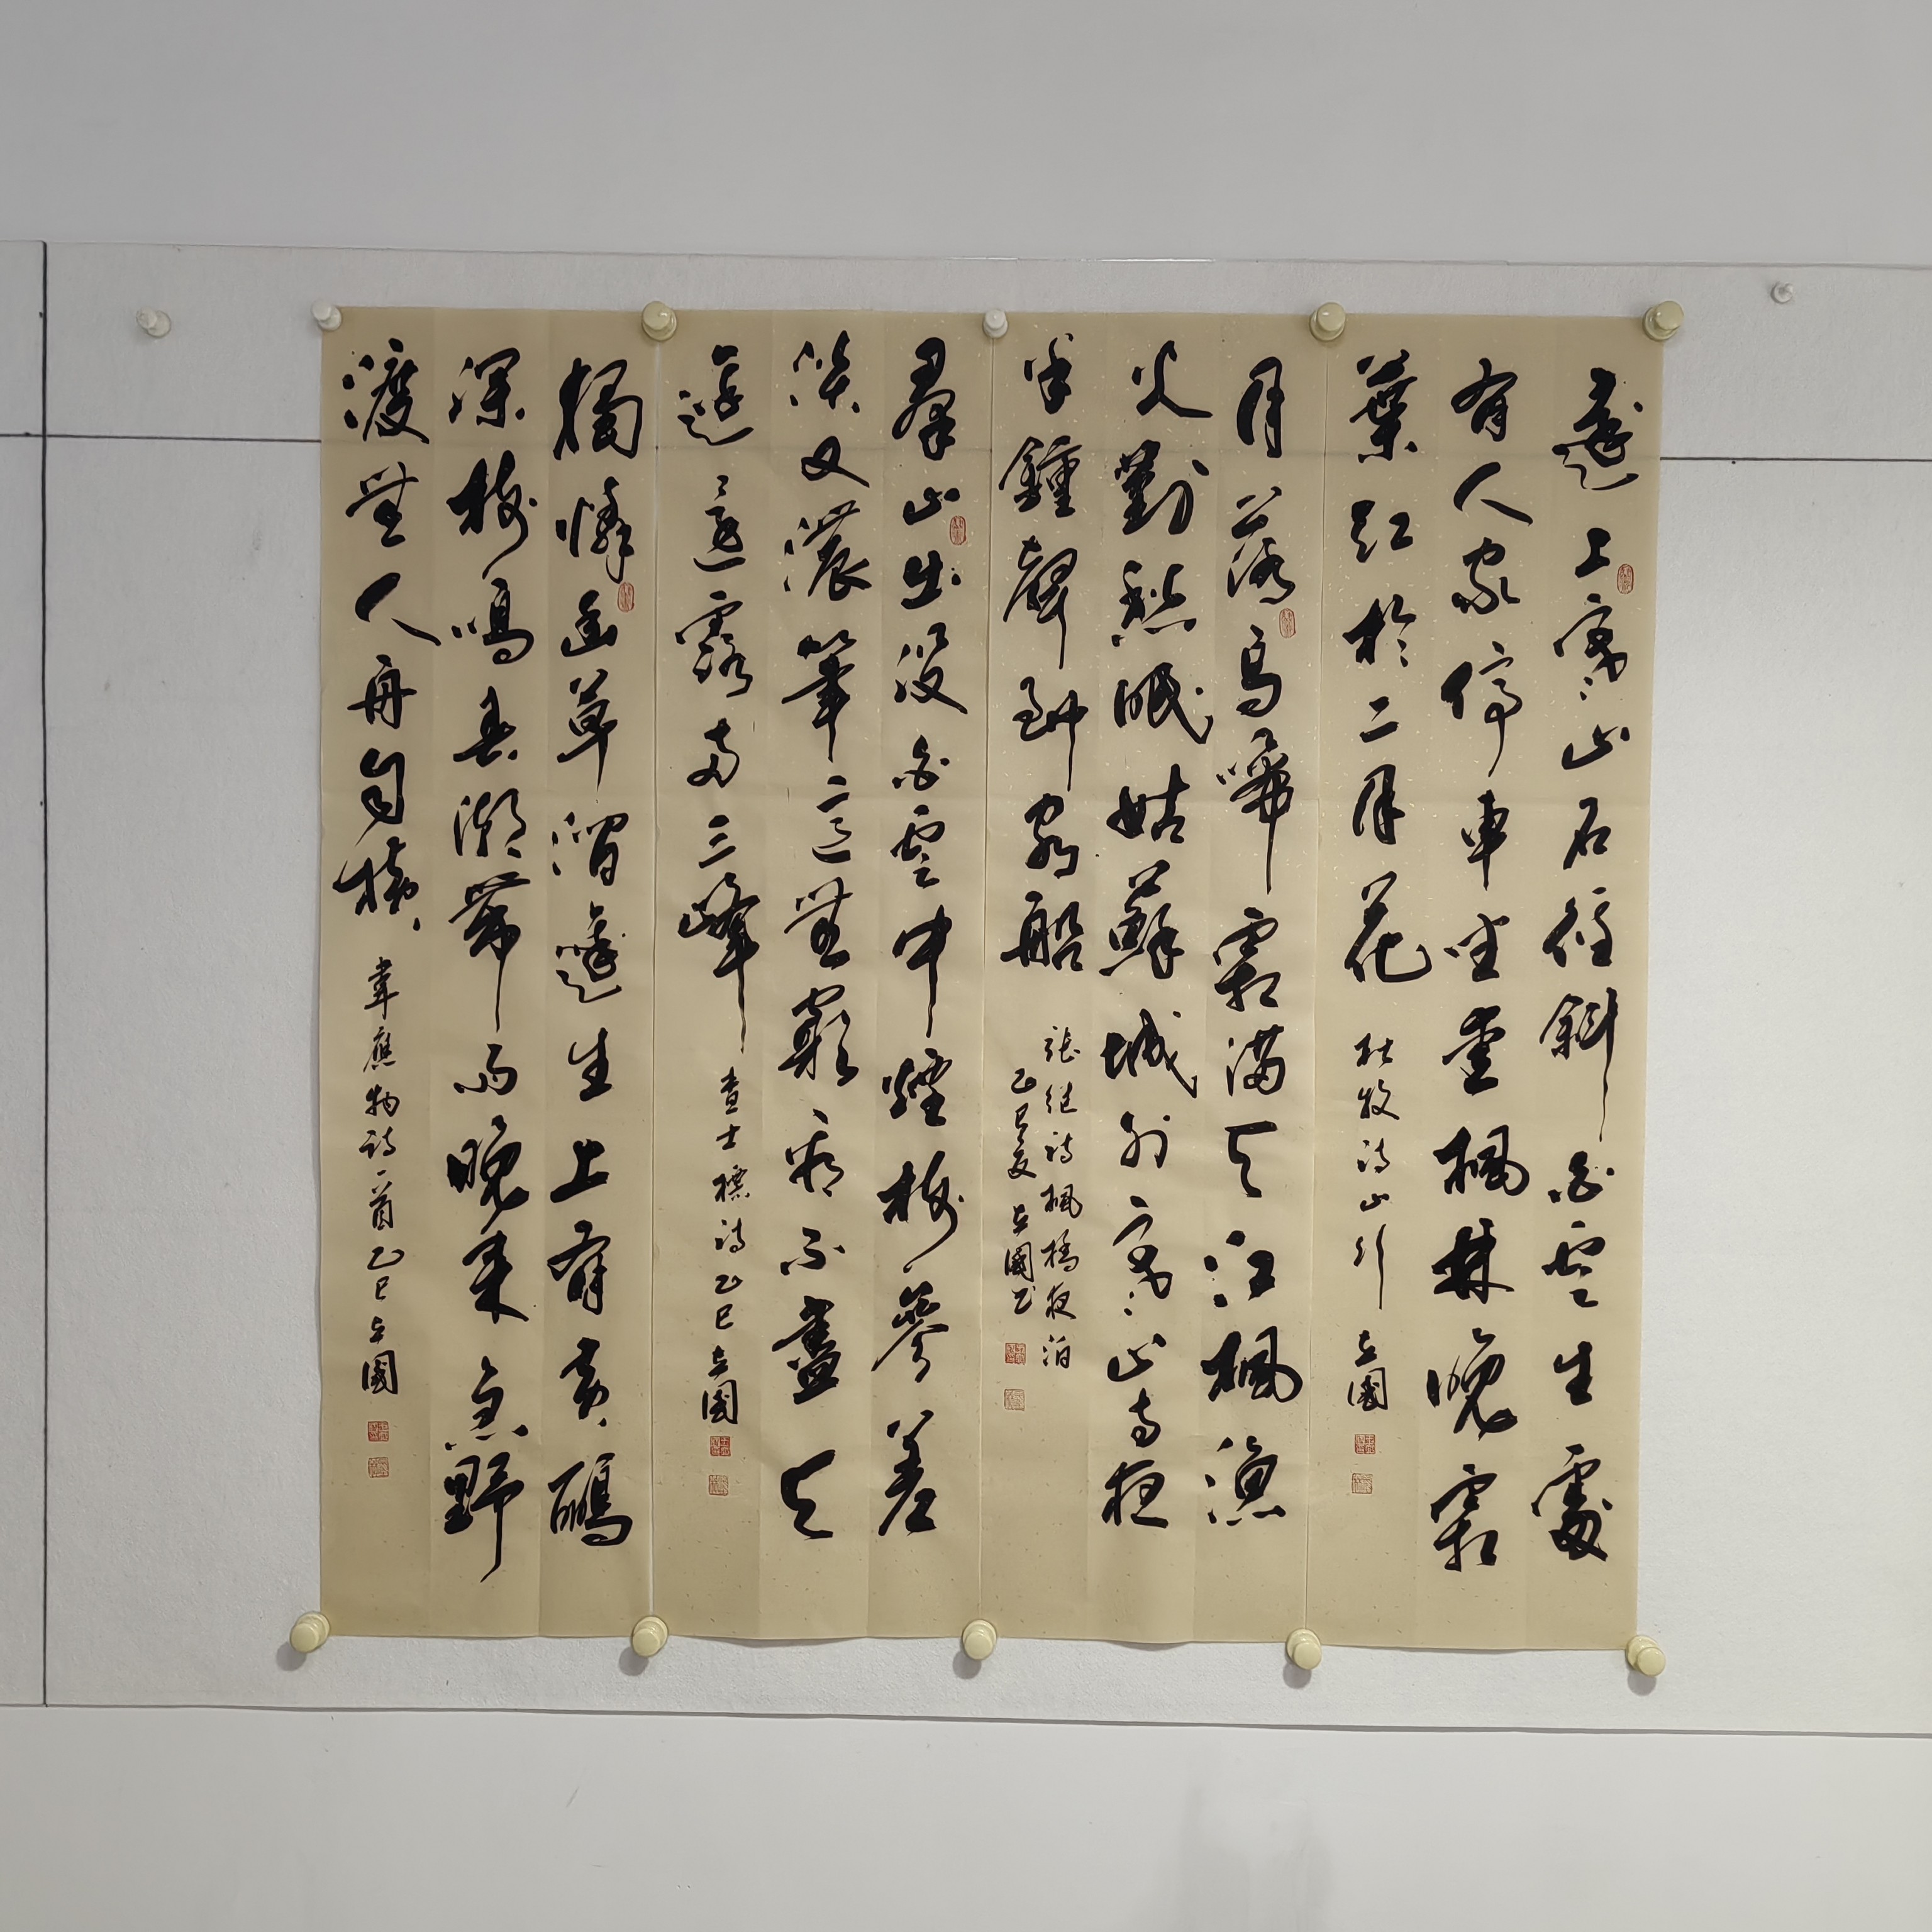 遠上寒山石徑斜白雲生處
有人家停車坐愛楓林晚霜
葉紅於二月花
杜牧詩山行 立國
月落烏啼霜滿天江楓漁
火對愁眠姑蘇城外寒山寺夜
半鍾聲到客船
張继詩楓橋夜泊
乙巳夏 立國书
羣山出没白雲中煙樹參差
淡又濃筆意無窮看不盡天
邊露兩三峰
查士標詩乙巳立國
獨憐幽草澗邊生上有黄鸝
深樹鳴春潮帶雨晚来急野
渡無人舟自橫
韋應物詩一首乙巳立國